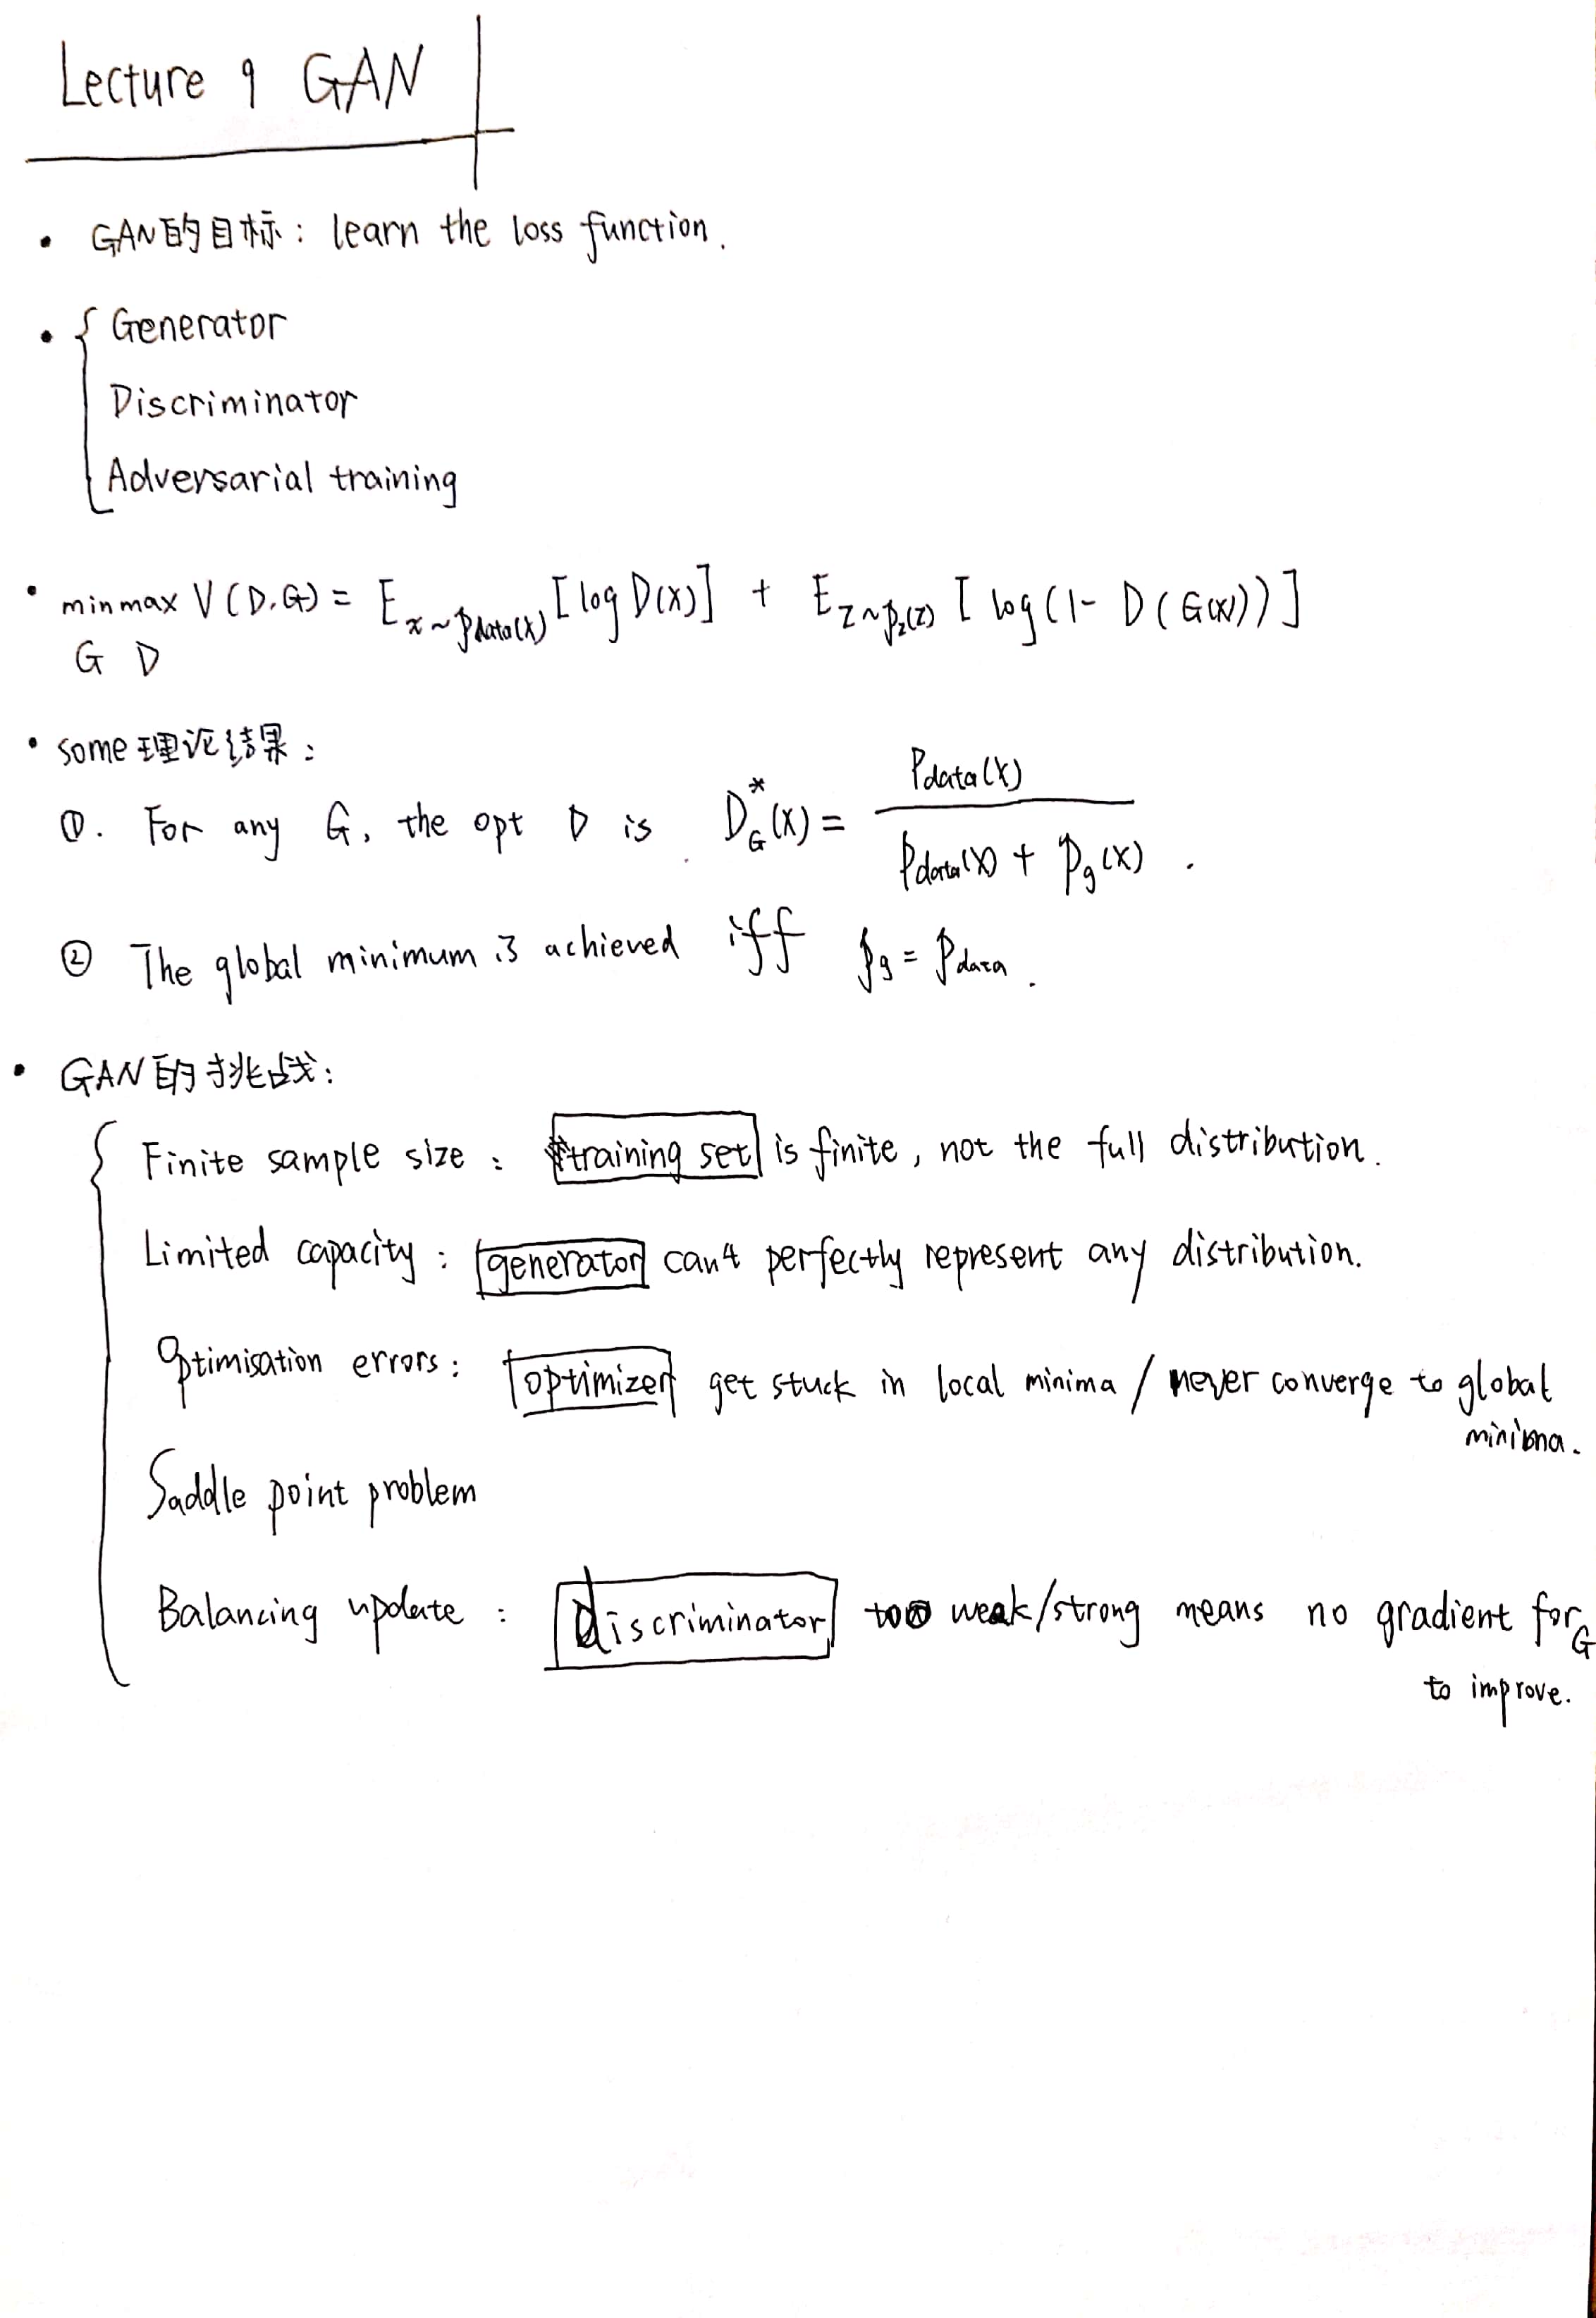 Lecture 9 GAN
• GAN的目标: learn the loss function.
• { Generator
Discriminator
Adversarial training
• min max V(D,G) = E_{x~p_data(x)} [log D(x)] + E_{z~p_z(z)} [log(1- D(G(x)))]
G D
• some 理论结果:
①. For any G, the opt D is D*_G(x) = p_data(x) / (p_data(x) + p_g(x)).
② The global minimum is achieved iff p_g = p_data.
• GAN的挑战:
{ Finite sample size: training set is finite, not the full distribution.
Limited capacity: generator can't perfectly represent any distribution.
Optimisation errors: optimizer get stuck in local minima / never converge to global
minima.
Saddle point problem
Balancing update: discriminator too weak/strong means no gradient for G
to improve.